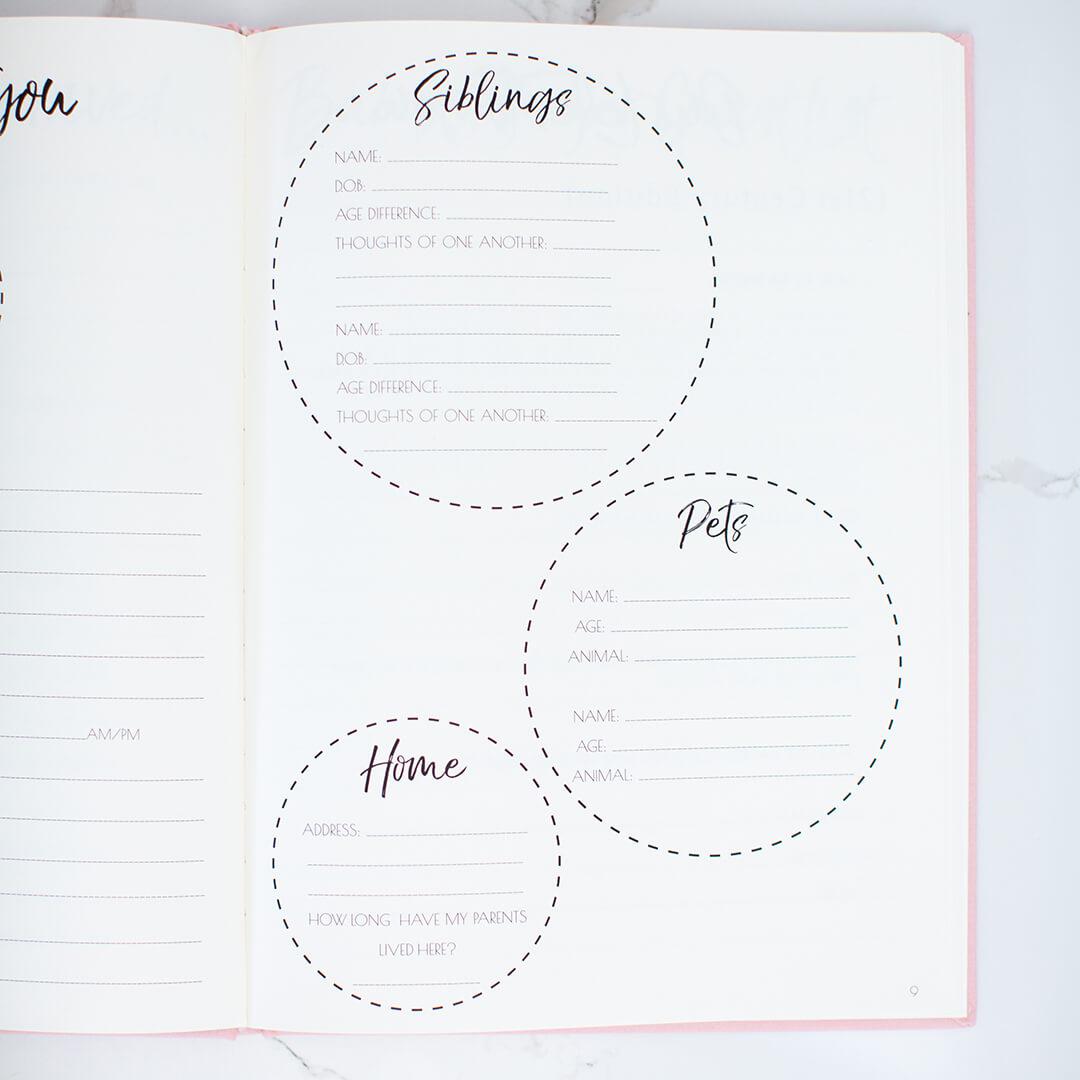 you
AM/PM
Siblings
NAME:
D.O.B:
AGE DIFFERENCE:
THOUGHTS OF ONE ANOTHER:
NAME:
D.O.B:
AGE DIFFERENCE:
THOUGHTS OF ONE ANOTHER:
Pets
NAME:
AGE:
ANIMAL:
NAME:
AGE:
ANIMAL:
Home
ADDRESS:
HOW LONG HAVE MY PARENTS
LIVED HERE?
9